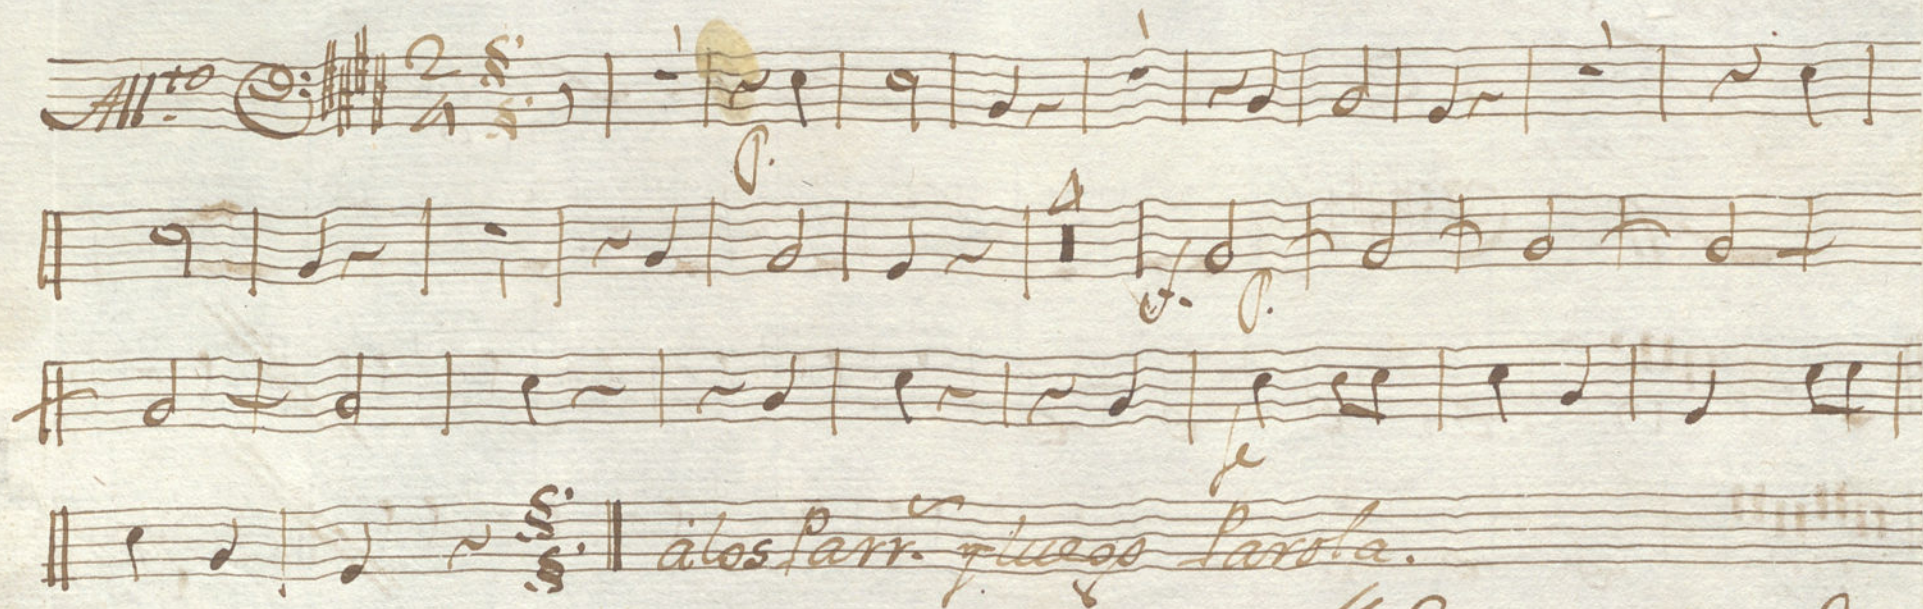 All.to 2/4
1
P.
1
1
4
f. P.
fe
a los Parr.s y luego Parola.